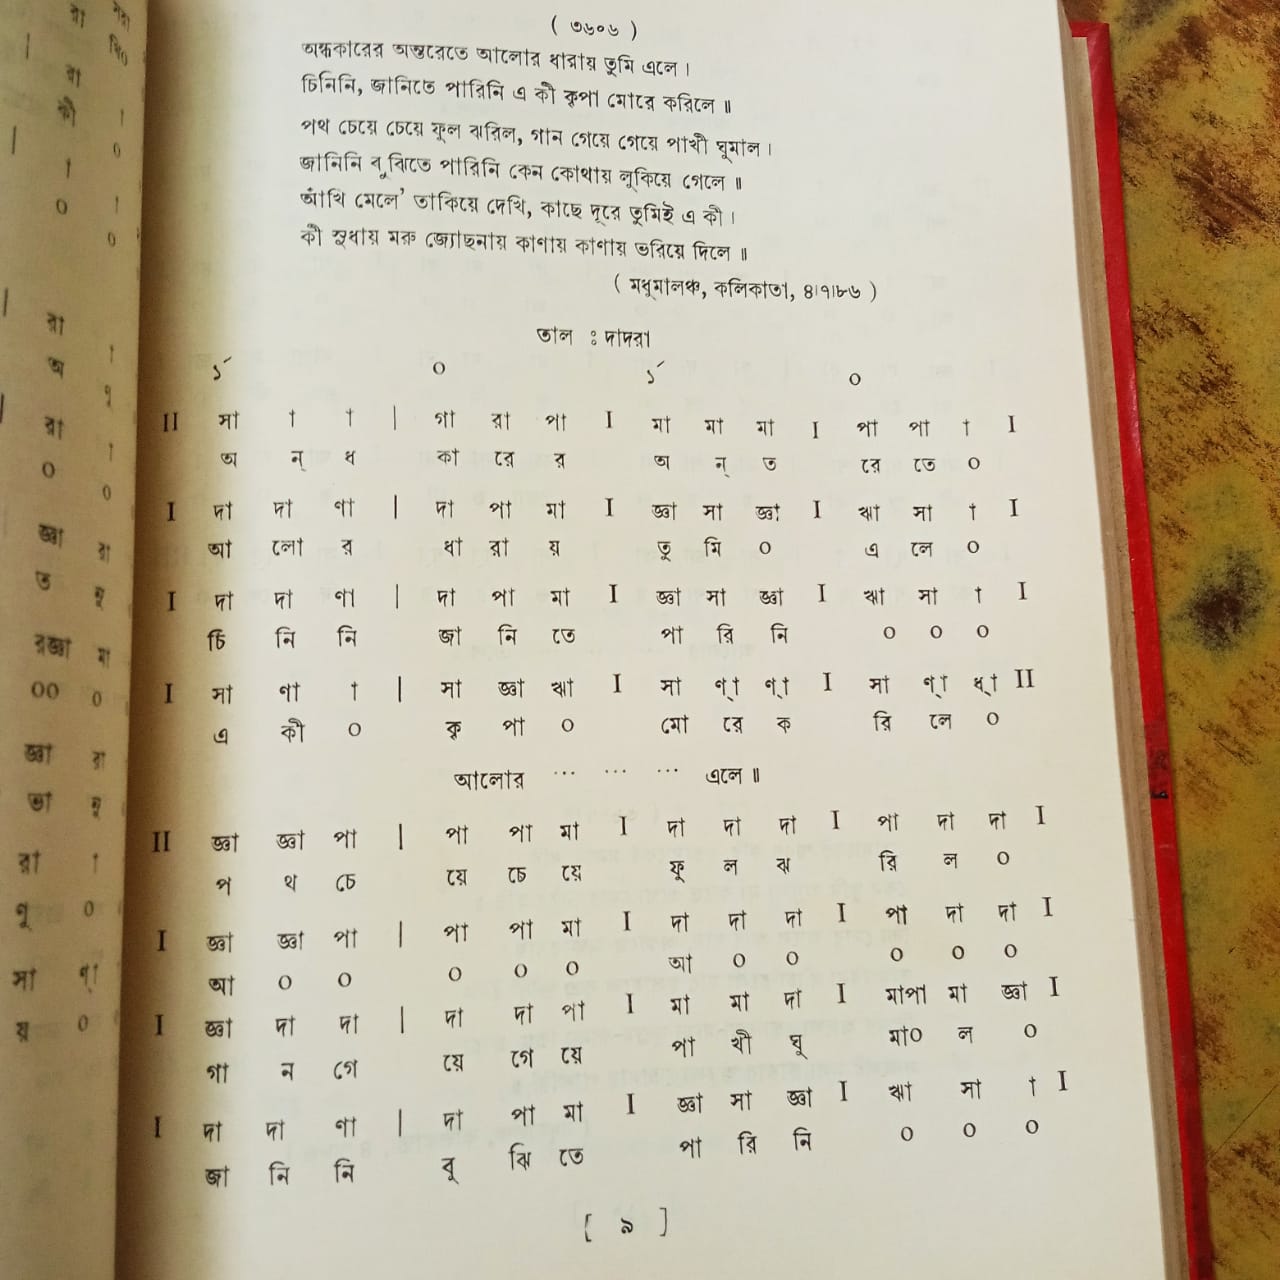 ( ৩৬০৬ )
অন্ধকারের অন্তরেতে আলোর ধারায় তুমি এলে।
চিনিনি, জানিতে পারিনি এ কী কৃপা মোরে করিলে॥
পথ চেয়ে চেয়ে ফুল ঝরিল, গান গেয়ে গেয়ে পাখী ঘুমাল।
জানিনি বুঝিতে পারিনি কেন কোথায় লুকিয়ে গেলে॥
আঁখি মেলে' তাকিয়ে দেখি, কাছে দূরে তুমিই এ কী।
কী সুধায় মরু জ্যোছনায় কাণায় কাণায় ভরিয়ে দিলে॥
( মধুমালঞ্চ, কলিকাতা, ৪।৭।৮৬ )
তাল : দাদরা
১´ ০ ১´ ০
II সা া া | গা রা পা I মা মা মা I পা পা া I
অ ন্ ধ কা রে র অ ন্ ত রে তে ০
I দা দা ণা | দা পা মা I জ্ঞা মা জ্ঞা I ঋা সা া I
আ লো র ধা রা য় তু মি ০ এ লে ০
I দা দা ণা | দা পা মা I জ্ঞা মা জ্ঞা I ঋা সা া I
চি নি নি জা নি তে পা রি নি ০ ০ ০
I সা ণা া | সা জ্ঞা ঋা I সা ণ্া ণ্া I সা ণ্া ধ্া II
এ কী ০ কৃ পা ০ মো রে ক রি লে ০
আলোর ... ... ... এলে॥
II জ্ঞা জ্ঞা পা | পা পা মা I দা দা দা I পা দা দা I
প থ চে য়ে চে য়ে ফু ল ঝ রি ল ০
I জ্ঞা জ্ঞা পা | পা পা মা I দা দা দা I পা দা দা I
আ ০ ০ ০ ০ ০ আ ০ ০ ০ ০ ০
I জ্ঞা দা দা | দা দা পা I মা মা দা I মাপা মা জ্ঞা I
গা ন গে য়ে গে য়ে পা খী ঘু মা০ ল ০
I দা দা ণা | দা পা মা I জ্ঞা মা জ্ঞা I ঋা সা া I
জা নি নি বু ঝি তে পা রি নি ০ ০ ০
[ ৯ ]